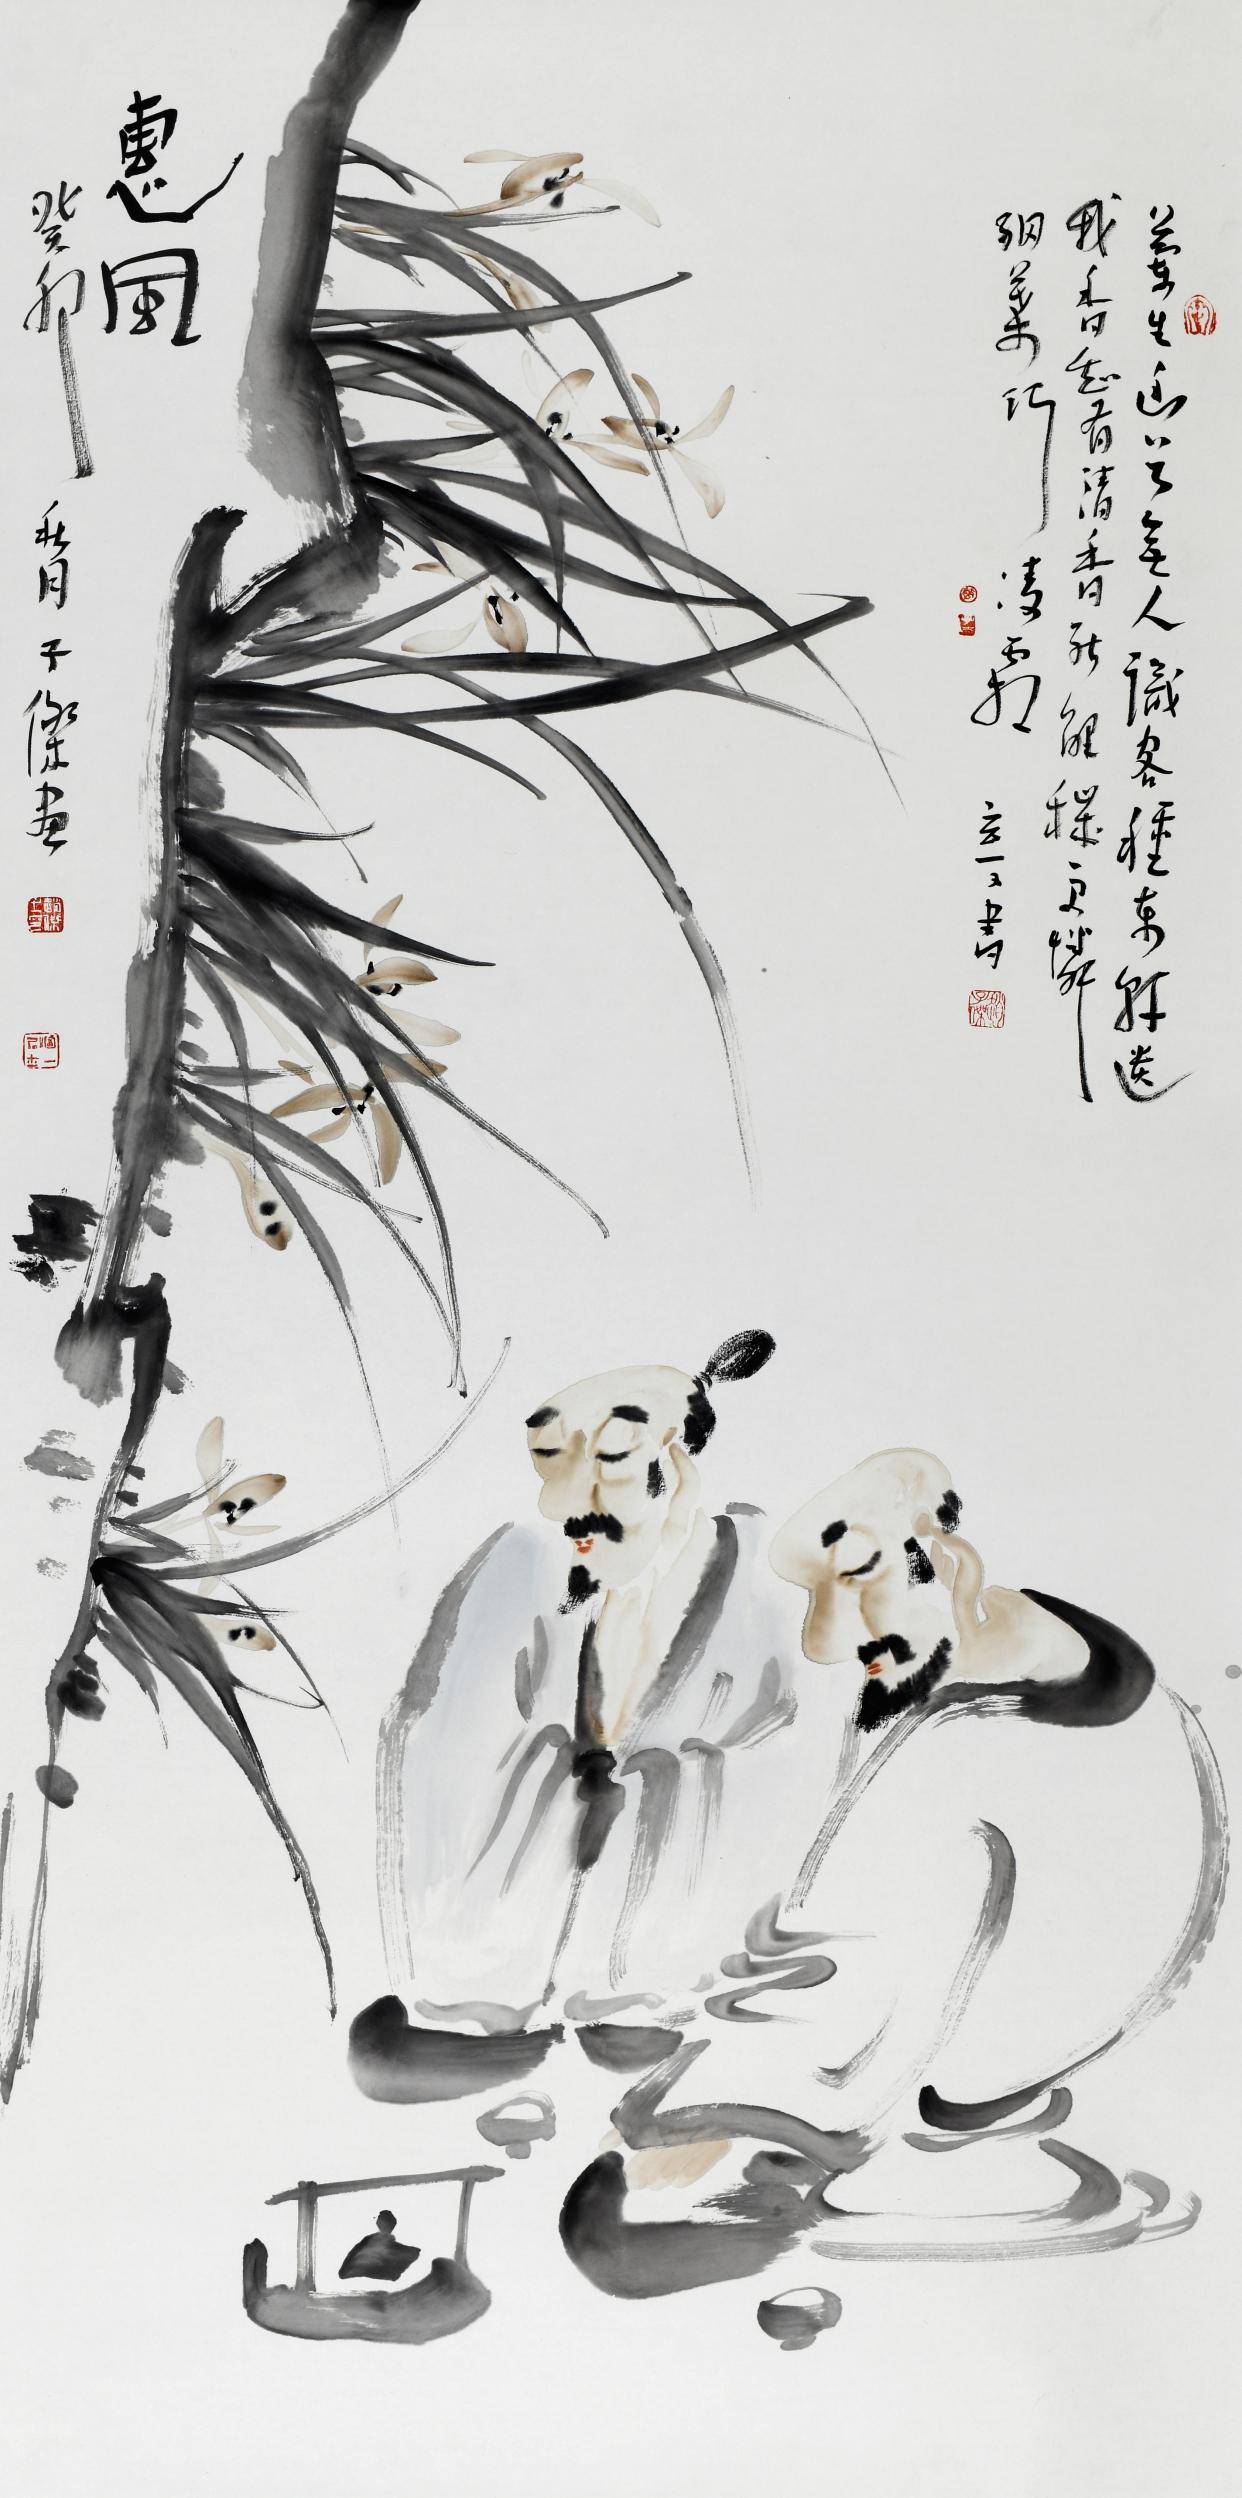 蘭生幽谷無人識客種東軒遺
我香知有清香能解穢更憐
細葉巧凌霜
書
惠風
癸卯秋月子傑畫